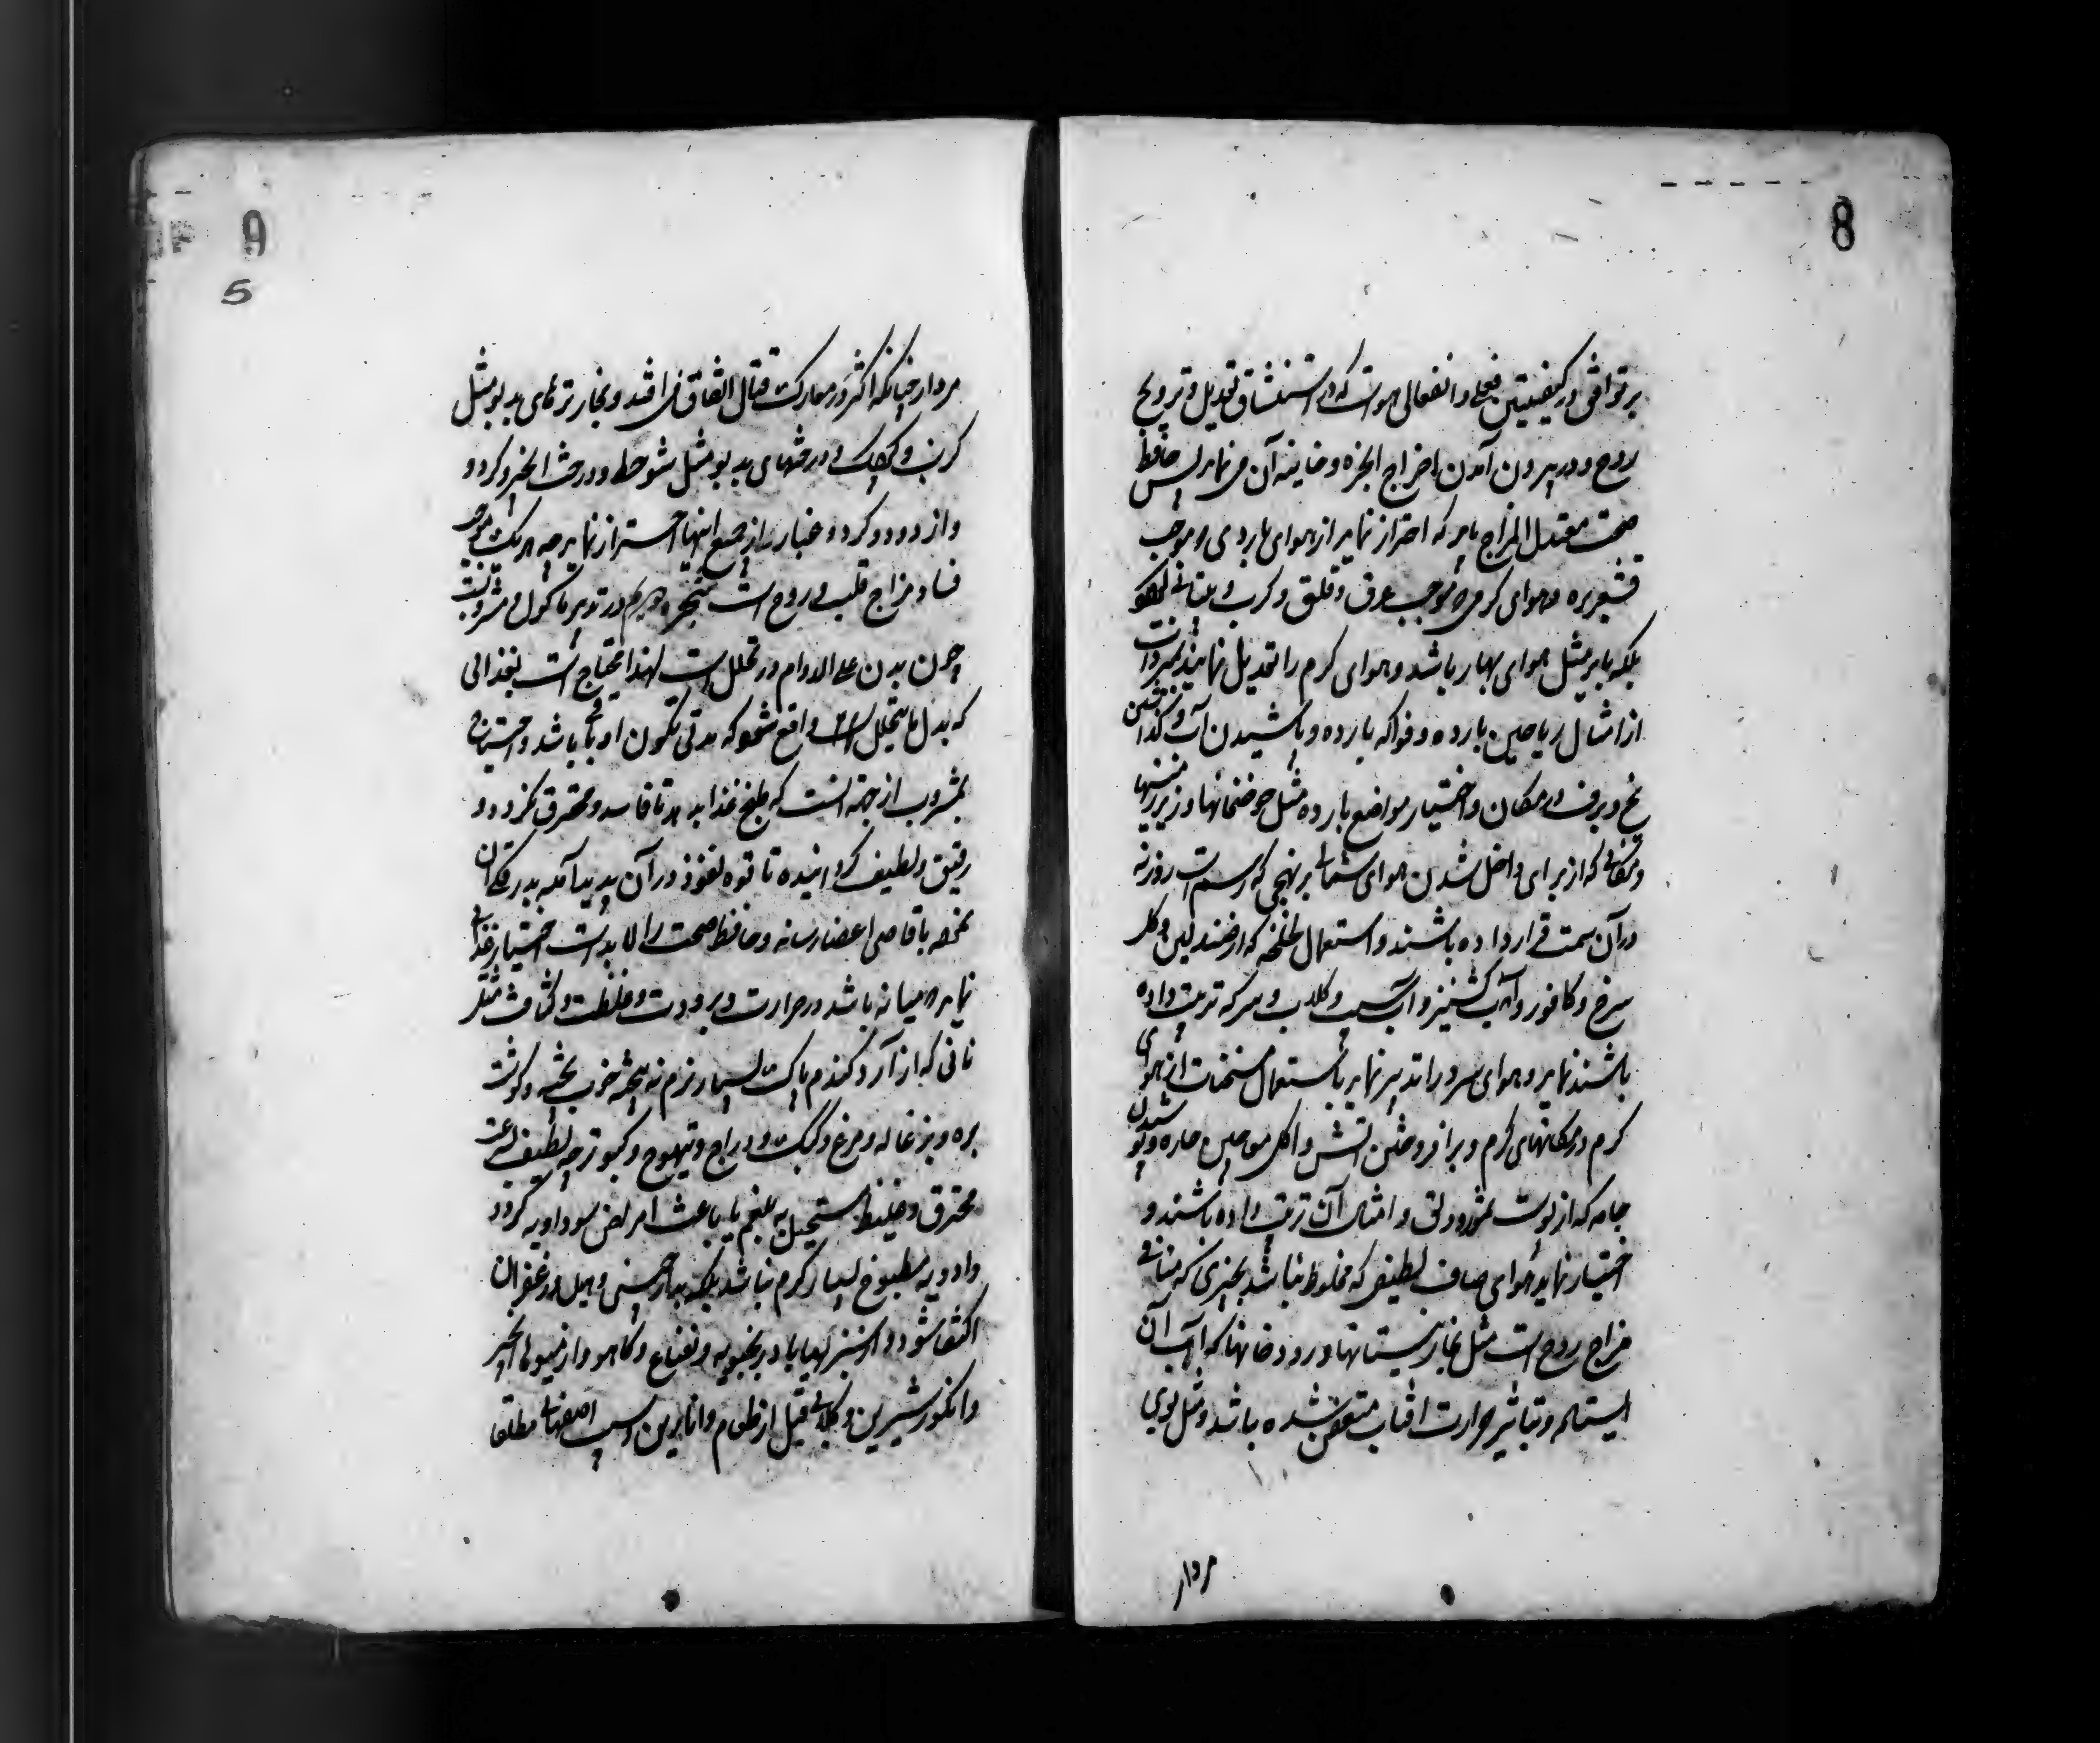 8
بر توافق در کیفیتین فعلی و انفعالی هواست که در استنشاق تعدیل و ترویح
روح و در بیرون آمدن اخراج ابخره دخانیه آن می نماید پس حافظ
صحت معتدل المزاج باید که احتراز نماید از هوای بارد که موجب
قشعریره و هوای گرم که موجب عرق و قلق و کرب و بیتابی
بلکه باید مثل هوای بهار باشد و هوای گرم را تعدیل نمایند بمبردات
از امثال ریاحین بارده و فواکه بارده و پاشیدن آب و گذاشتن
یخ و برف در مکان و اختیار مواضع بارده مثل حوضخانها و زیرزمینها
و مکانی که از برای داخل شدن هوای شمالی بر نهجی که رسم است روزنه
در آن سمت قرار داده باشند و استعمال لخلخه که از صندلین و گل
سرخ و کافور و آب گشنیز و آب سیب و گلاب و سرکه ترتیب داده
باشند نماید و هوای سرد را تدبیر نماید باستعمال مسخنات از هوای
گرم در مکانهای گرم و بر افروختن آتش و اکل معاجین حاره و پوشیدن
جامه که از پوست سمور و دلق و امثال آن ترتیب داده باشند و
اختیار نماید هوای صاف لطیف که مخلوط نباشد بچیزی که منافی
مزاج روح است مثل بخار نیستانها و رودخانها که آب آن
ایستاده و بتاثیر حرارت آفتاب متعفن شده باشد و مثل بوی
مردار
9
5
مردار چنانکه اکثر در معارک قتال اتفاق می افتد و بخار ترهای بدبو مثل
کرنب و و درختهای بدبو مثل شوحط و درخت انجیر و گردو
و از دود و گرد و غبار از جمیع اینها احتراز نماید چه هر یک موجب
فساد مزاج قلب و روح است در تدبیر ماکول و مشروبست
چون بدن علی الدوام در تحلل است لهذا محتاج است بغذائی
که بدل ما یتحلل واقع شود که مدتی تکون او باقی باشد و احتیاج
بمشروب از جهة آنست که طبخ غذا بدهد تا فاسد و محترق نگردد و
رقیق و لطیف گردانیده تا قوه نفوذ در آن پدید آمده ببدرقگی آن
باقاصی اعضا رساند و حافظ صحت را لابد است اختیار غذائی
نماید که میانه باشد در حرارت و برودت و غلظت و کثافت مثل
نانی که از آرد گندم پاک بسیار نرم نه بیخته خوب پخته و گوشت
بره و بزغاله و مرغ و کبک و دراج و تیهوج و کبوتر چه لطیف
محترق و غلیظ مستحیل به بلغم یا باعث امراض سوداویه گردد
و ادویه مطبوخ بسیار گرم نباشد بلکه بدارچینی و هیل و زعفران
اکتفا شود و از سبزیها بادرنجبویه و نعناع و کاهو و از میوها انجیر
و انگور شیرین و گلابی قبل از طعام و انارین و سیب اصفهانی مطلقا